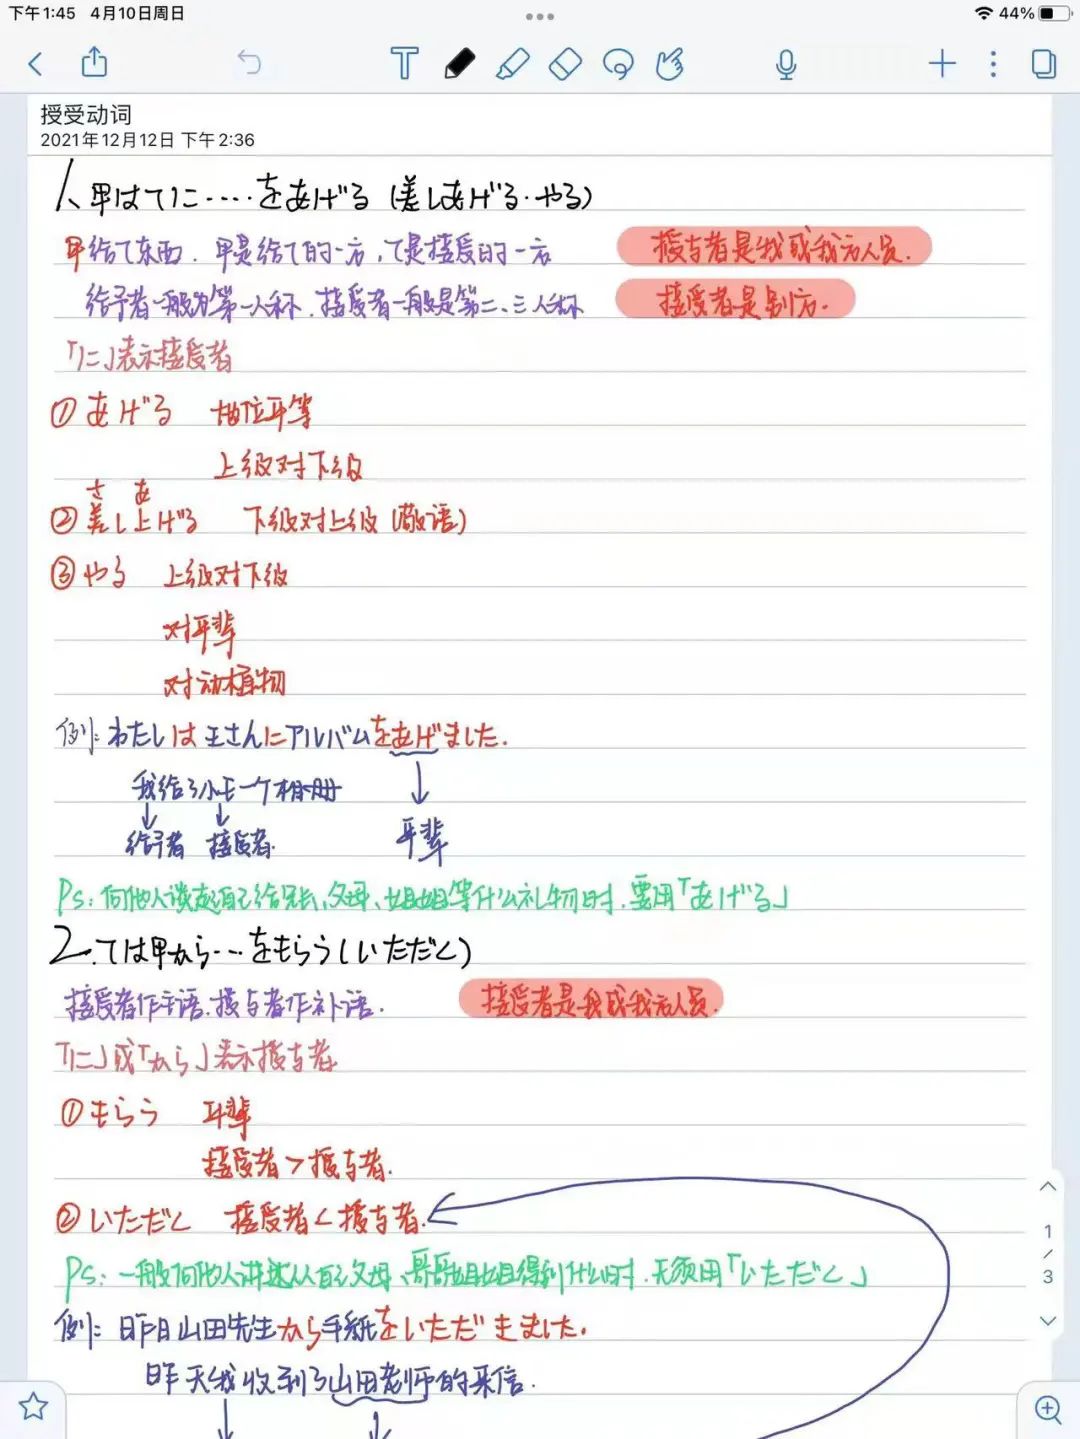 下午1:45 4月10日周日
44%
授受动词
2021年12月12日 下午2:36
1、甲はてに‥‥をあげる(差しあげる・やる)
甲给て东西．甲是给て的一方，て是接受的一方 授与者是我或我方人员．
给予者一般为第一人称．接受者一般是第二、三人称 接受者是别方．
「に」表示接受者
①あげる 地位平等
上级对下级
さ あ
②差し上げる 下级对上级(敬语)
③やる 上级对下级
对平辈
对动植物
例：わたしは王さんにアルバムをあげました．
我给了小王一个相册
给予者 接受者． 平辈
Ps：向他人谈起自己给兄长、父母、姐姐等什么礼物时．要用「あげる」
2．ては甲から‥‥をもらう(いただく)
接受者作主语．授与者作补语． 接受者是我或我方人员．
「に」或「から」表示授与者
①もらう 平辈
接受者＞授与者．
②いただく 接受者＜授与者．
Ps：一般向他人讲述从自己父母、哥哥姐姐得到什么时．无须用「いただく」
例：昨日山田先生から手紙をいただきました．
昨天我收到了山田老师的来信．
1
/
3